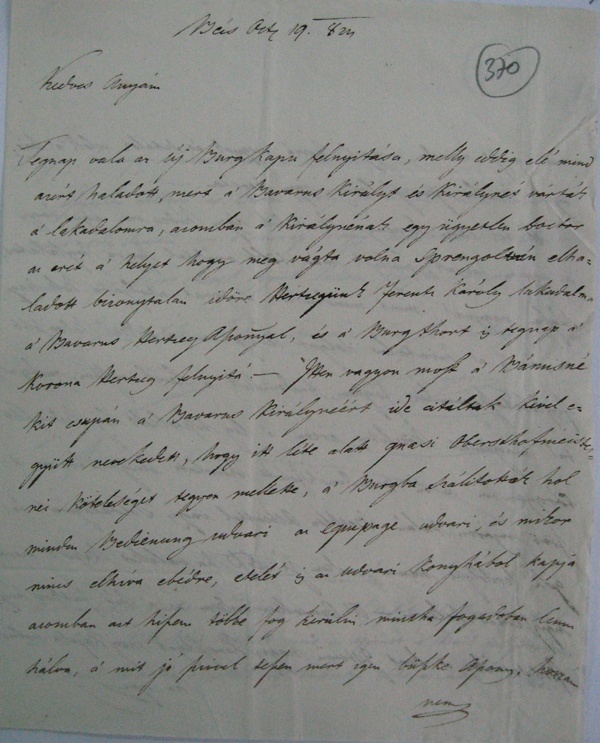 Bécs Oct 19. 824
370
Kedves Anyám
Tegnap vala az új Burg Kapu felnyitása, melly eddig elé mind
azért haladott, mert á Bavarus Királyt és Királynét várták
á lakadalomra, azomban á Királynénak egy ügyetlen doctor
az erét á helyet hogy meg vágta volna Sprengolta, elha-
ladott bizonytalan időre Hertzegünk Ferentz Károly lakadalma
á Bavarus Hertzeg Aszonyal, és á Burgthort is tegnap á
Korona Hertzeg felnyitá. — Itten vagyon most á Bánusné
kit csupán á Bavarus Királynéért ide citáltak kivel e-
gyütt nevekedett, hogy itt léte alatt quasi Obersthofmeiste-
nei köteleséget tegyen mellette, á Burgba szálitották hol
minden Bedienung udvari az equipage udvari, és mikor
nincs elhíva ebédre, etelét is az udvari konyhábol kapja
azomban azt hiszem többe fog kerülni mintha fogadoban lenne
szálva, á mit jó szivel teszen mert igen büszke Aszony, hozzám
nem